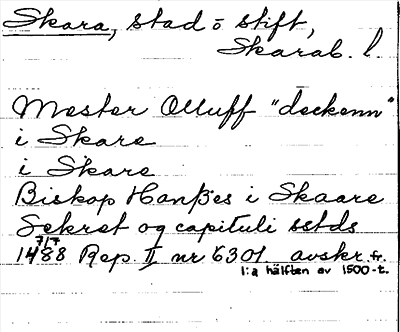 Skara, stad o stift,
Skarab. l.
Mester Olluff "deckenn"
i Skare
i Skare
Biskop Hanßes i Skaare
Sekret og capituli sstds
7/7
1488 Rep. II nr 6301 avskr. fr.
1:a hälften av 1500-t.